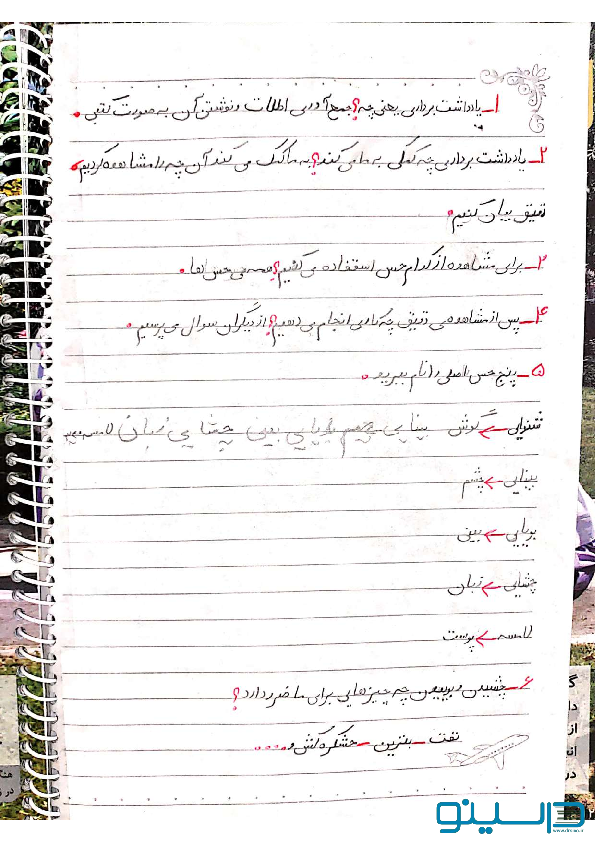 ۱_ یادداشت برداری یعنی چه؟ جمع آوری اطلاعات و نوشتن آن به صورت کتبی.
۲_ یادداشت برداری چه کمکی به ما می کند؟ به ما کمک می کند آن چه را مشاهده کردیم
دقیق بیان کنیم.
۳_ برای مشاهده از کدام حس استفاده می کنیم؟ همه ی حس ها.
۴_ پس از مشاهده ی دقیق چه کاری انجام می دهیم؟ از دیگران سوال می پرسیم.
۵_ پنج حس اصلی را نام ببرید.
شنوایی ← گوش بینایی چشم بویایی بینی چشایی زبان لامسه
بینایی ← چشم
بویایی ← بینی
چشایی ← زبان
لامسه ← پوست
۶_ چشیدن و بوییدن چه چیزهایی برای ما ضرر دارد؟
نفت _ بنزین _ حشره کش و ....
درسینو